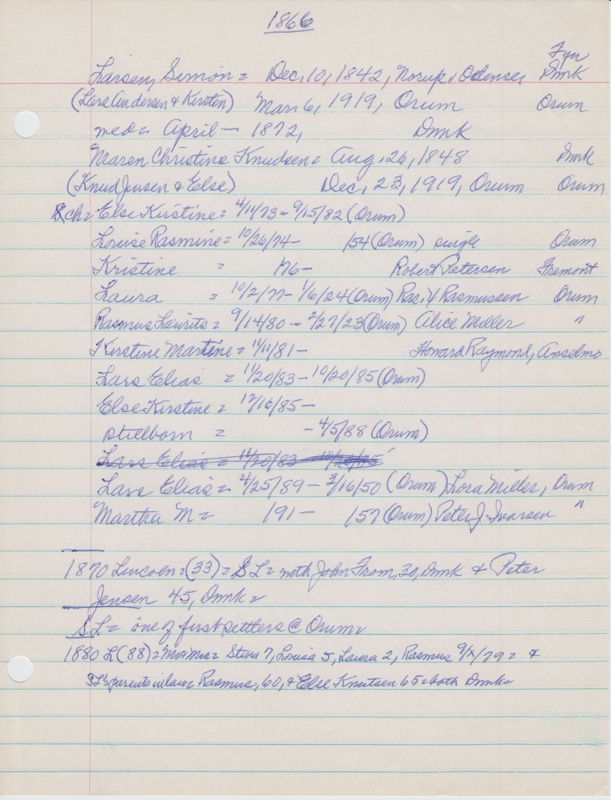 1866
Fyn
Larsen, Simon = Dec. 10, 1842, Norup, Odense, Dmk
(Lars Andersen & Kirsten) Mar. 6, 1919, Orum Orum
med = April — 1872, Dmk
Maren Christine Knudsen = Aug. 26, 1848 Dmk
(Knud Jensen & Else) Dec. 23, 1919, Orum Orum
ch = Else Kirstine = 4/14/73 - 9/15/82 (Orum)
Louise Rasmine = 10/26/74 - /54 (Orum) single Orum
Kristine = /76 - Robert Petersen Fremont
Laura = 10/2/77 - 1/6/24 (Orum) Ras. Rasmussen Orum
Rasmus Laurits = 9/14/80 - 2/27/23 (Orum) Alice Miller "
Kirstine Martine = 11/11/81 - Howard Raymond, Anselmo
Lars Elias = 11/20/83 - 10/20/85 (Orum)
Else Kirstine = 12/16/85 -
stillborn = - 4/5/88 (Orum)
Lars Elias = 11/20/83 10/20/85
Lars Elias = 4/25/89 - 3/16/50 (Orum) Lora Miller, Orum
Martha M = /91 - /57 (Orum) Peter J Ivarsen "
1870 Lincoln = (33) = SL = with John From, 30, Dmk & Peter
Jensen 45, Dmk =
SL = one of first settlers @ Orum =
1880 L (88) = Stena 7, Louisa 5, Laura 2, Rasmus 9/X/79 = &
SL's parents in law = Rasmus, 60, & Else Knutsen 65 = both Dmk =